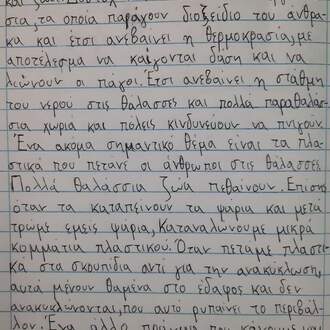 σια, τα οποία παράγουν διοξείδιο του άνθρα-
κα και έτσι ανεβαίνει η θερμοκρασία, με
αποτέλεσμα να καίγονται δάση και να
λιώνουν οι πάγοι. Έτσι ανεβαίνει η στάθμη
του νερού στις θάλασσες και πολλά παραθαλάσ-
σια χωριά και πόλεις κινδυνεύουν να πνιγούν.
Ένα ακόμα σημαντικό θέμα είναι τα πλα-
στικά που πετάνε οι άνθρωποι στις θάλασσες.
Πολλά θαλάσσια ζώα πεθαίνουν. Επίσης
όταν τα καταπίνουν τα ψάρια και μετά
τρώμε εμείς ψάρια, καταναλώνουμε μικρά
κομμάτια πλαστικού. Όταν πετάμε πλαστι-
κά στα σκουπίδια αντί για την ανακύκλωση,
αυτά μένουν θαμένα στο έδαφος και δεν
ανακυκλώνονται, που αυτό ρυπαίνει το περιβάλ-
λον. Ένα άλλο πράγμα που κάνουμε